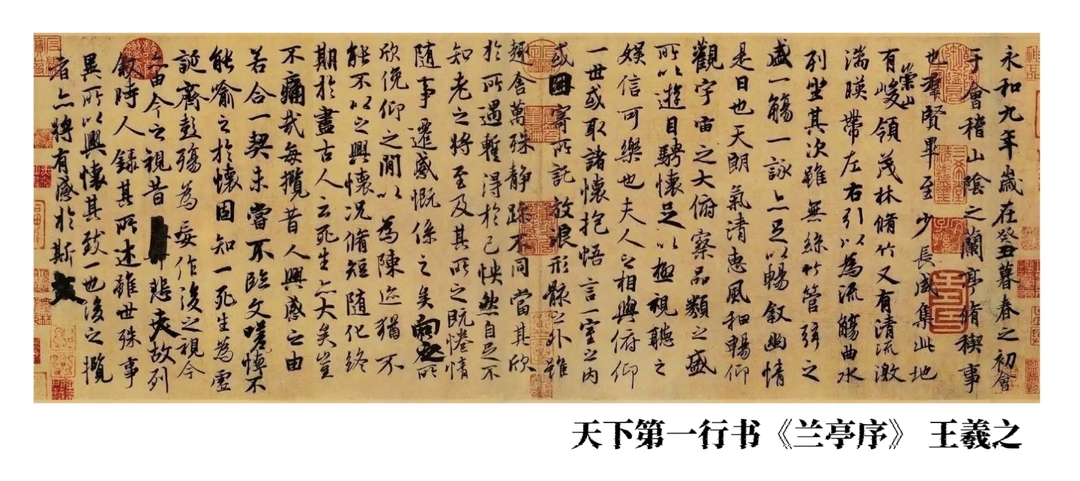 永和九年歲在癸丑暮春之初會
于會稽山陰之蘭亭脩稧事
也羣賢畢至少長咸集此地
有崇山峻領茂林脩竹又有清流激
湍暎帶左右引以為流觴曲水
列坐其次雖無絲竹管弦之
盛一觴一詠亦足以暢敘幽情
是日也天朗氣清惠風和暢仰
觀宇宙之大俯察品類之盛
所以遊目騁懷足以極視聽之
娛信可樂也夫人之相與俯仰
一世或取諸懷抱悟言一室之內
或因寄所託放浪形骸之外雖
趣舍萬殊靜躁不同當其欣
於所遇暫得於己怏然自足不
知老之將至及其所之既惓情
隨事遷感慨係之矣向之所
欣俛仰之閒以為陳迹猶不
能不以之興懷況脩短隨化終
期於盡古人云死生亦大矣豈
不痛哉每攬昔人興感之由
若合一契未嘗不臨文嗟悼不
能喻之於懷固知一死生為虛
誕齊彭殤為妄作後之視今
亦由今之視昔悲夫故列
敘時人錄其所述雖世殊事
異所以興懷其致一也後之攬
者亦將有感於斯文
天下第一行书《兰亭序》 王羲之